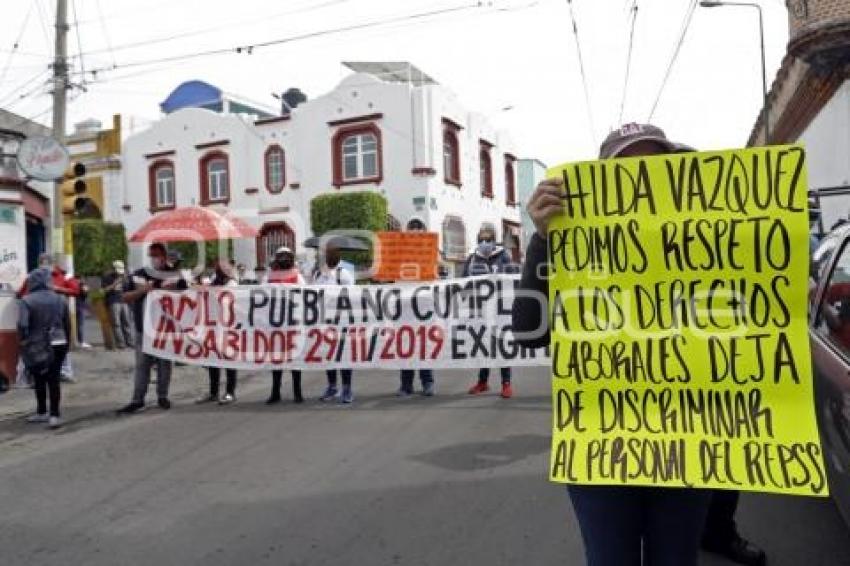 HILDA VAZQUEZ
PEDIMOS RESPETO
A LOS DERECHOS
LABORALES DEJA
DE DISCRIMINAR
AL PERSONAL DEL REPSS
AMLO, PUEBLA NO CUMPLE
INSABI DOF 29/11/2019 EXIGI